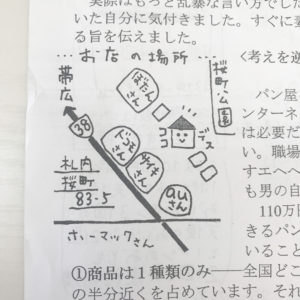 実際はもっと乱暴な言い方でした
いた自分に気付きました。すぐに妻
る旨を伝えました。
…お店の場所…
〈考えを逆
帯広
38
札内
桜町
83-5
ぱたん
さん
ドコモ
さん
チイキ
さん
auさん
ココ
デス
桜町公園
ホーマックさん
パン屋
ンターネ
は必要だ
い。職場
すエヘヘ
も男の自
110万
きるパン
いること
①商品は1種類のみ――全国どこ
の半分近くを占めています。それ